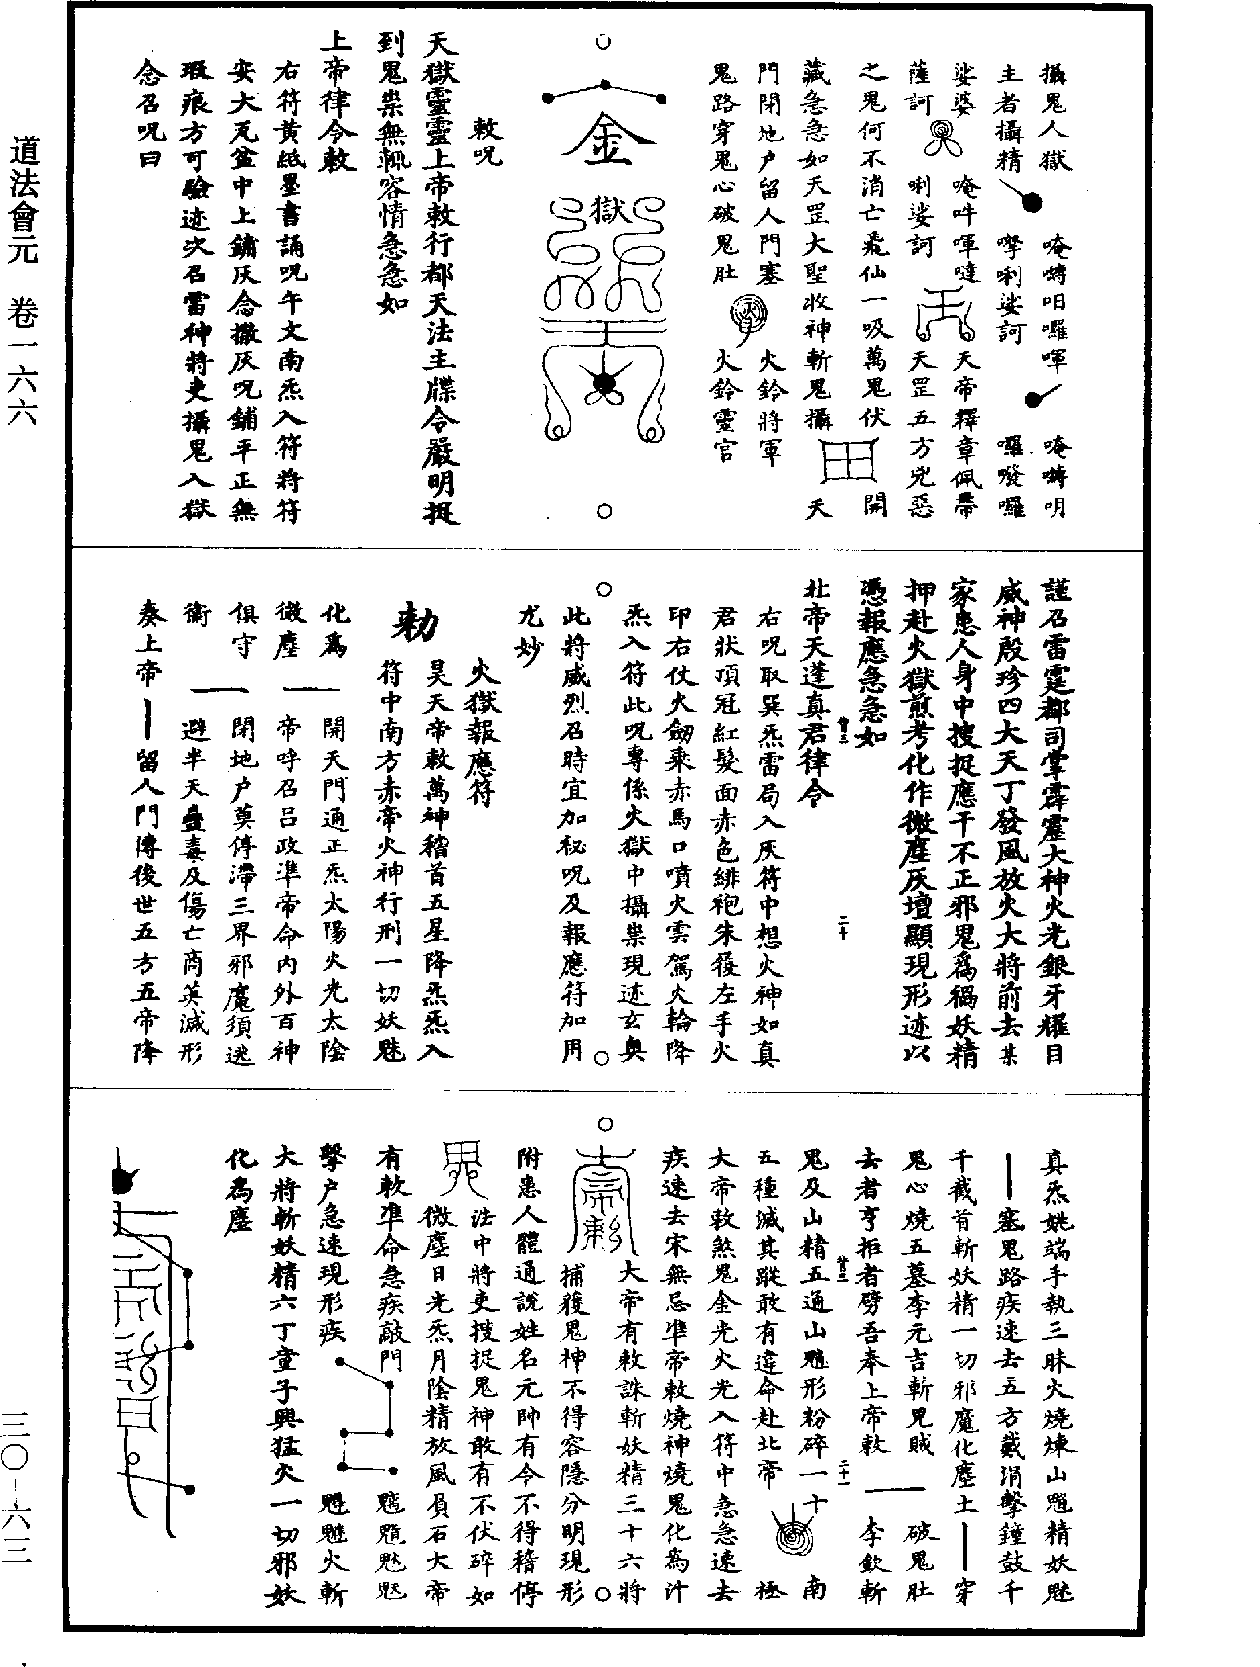 道法會元　卷一六六
三〇－六一三
攝鬼人獄　唵嚩呾囉㖶　唵嚩明
主者攝精　㘄唎娑訶　囉發囉
娑婆　唵吽㖶噠　天帝釋章佩帶
薩訶　唎娑訶　天罡五方兇惡
之鬼何不消亡飛仙一吸萬鬼伏　開
藏急急如天罡大聖收神斬鬼攝　天
門閉地户留人門塞　火鈴將軍
鬼路穿鬼心破鬼肚　火鈴靈官
金
獄
敕呪
天獄靈靈上帝敕行都天法主牒令嚴明捉
到鬼祟無輒容情急急如
上帝律令敕
右符黃紙墨書誦呪午文南炁入符將符
安大瓦盆中上鋪灰念撒灰呪鋪平正無
瑕痕方可驗迹次召雷神將吏攝鬼入獄
念召呪曰
謹召雷霆都司掌霹靂大神火光銀牙耀目
威神殷珍四大天丁發風放火大將前去某
家患人身中搜捉應干不正邪鬼爲禍妖精
押赴火獄煎考化作微塵灰壇顯現形迹以
憑報應急急如
北帝天蓬真君律令
右呪取巽炁雷局入灰符中想火神如真
君狀頂冠紅髮面赤色緋袍朱履左手火
印右仗火劒乘赤馬口噴火雲駕火輪降
炁入符此呪專係火獄中攝祟現迹玄奥
此將威烈召時宜加秘呪及報應符加用
尤妙
火獄報應符
勅　昊天帝敕萬神稽首五星降炁炁入
符中南方赤帝火神行刑一切妖魅
化爲　開天門通正炁太陽火光太陰
微塵　帝呼召呂政準帝命内外百神
俱守　閉地户莫停滯三界邪魔須逃
衞　避半天蠱毒及傷亡商英滅形
奏上帝　留人門傳後世五方五帝降
真炁姚端手執三昧火燒煉山魈精妖魅
塞鬼路疾速去五方戴涓擊鐘鼓千
千截首斬妖精一切邪魔化塵土　穿
鬼心燒五墓李元吉斬兇賊　破鬼肚
去者亨拒者劈吾奉上帝敕　李欽斬
鬼及山精五通山魈形粉碎一十　南
五種滅其蹤敢有違命赴北帝　極
大帝敕煞鬼金光火光入符中急急速去
疾速去宋無忌準帝敕燒神燒鬼化爲汁
大帝有敕誅斬妖精三十六將
捕獲鬼神不得容隱分明現形
附患人體通說姓名元帥有令不得稽停
法中將吏搜捉鬼神敢有不伏碎如
微塵日光炁月陰精放風負石大帝
有敕準命急疾敲門
擊户急速現形疾　魁魁火斬
大將斬妖精六丁童子興猛火一切邪妖
化爲塵